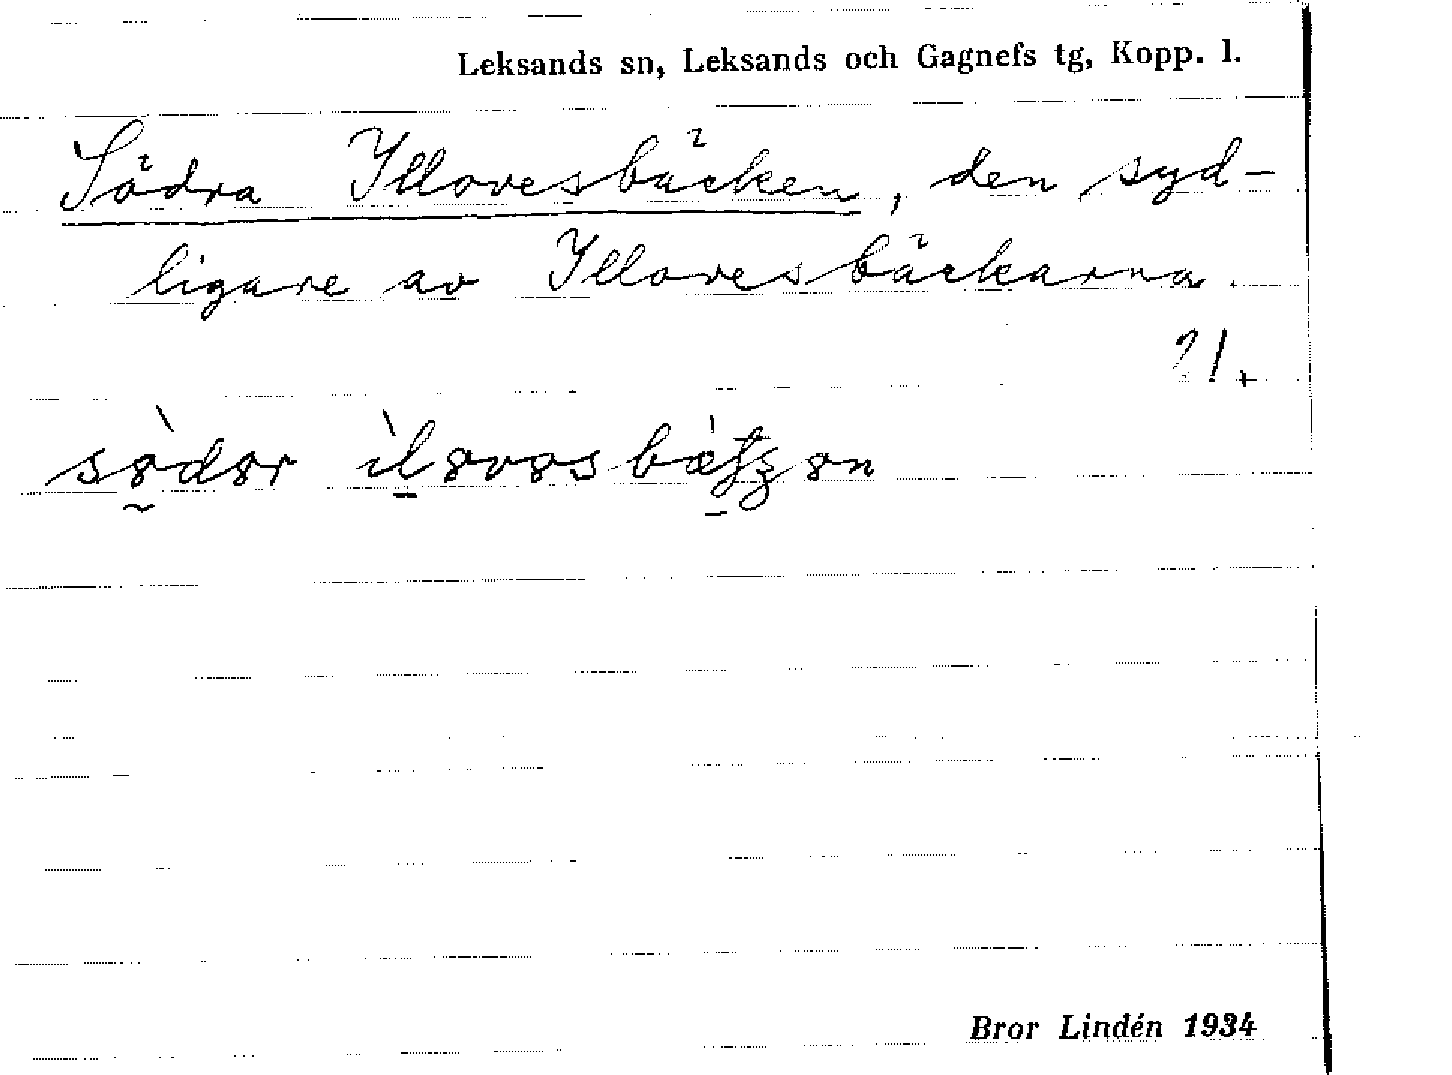 Leksands sn, Leksands och Gagnefs tg, Kopp. l.
Södra Yllovesbäcken, den syd-
ligare av Yllovesbäckarna.
21.
Bror Lindén 1934